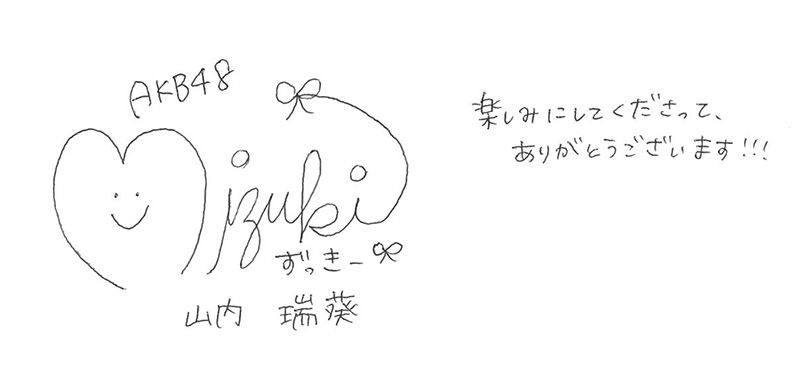 AKB48
Mizuki
ずっきー
山内 瑞葵
楽しみにしてくださって、
ありがとうございます!!!